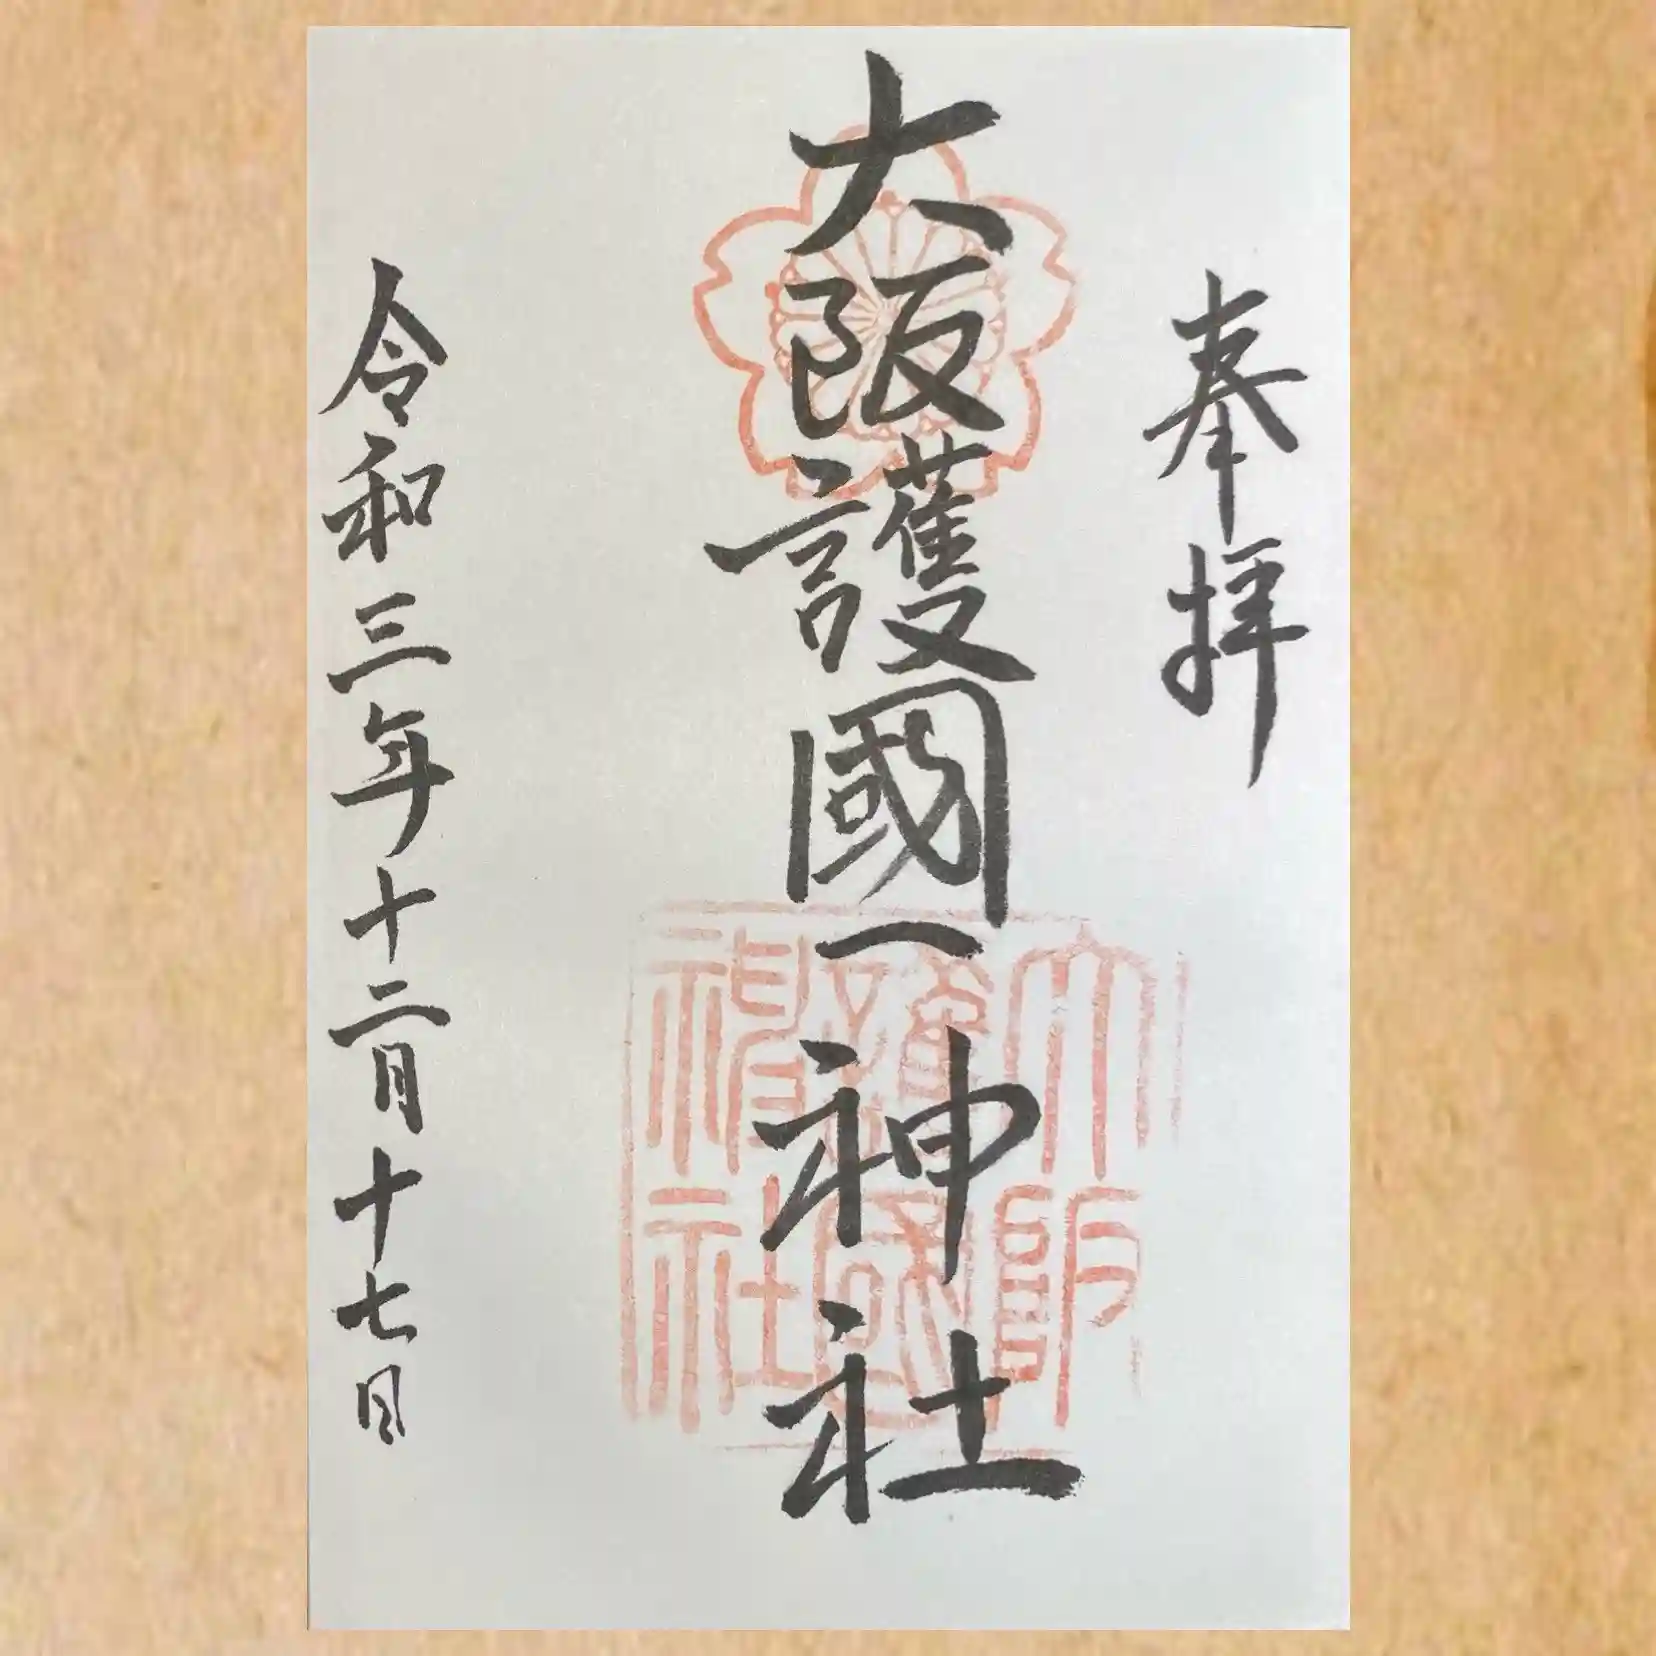 奉拝
大阪護國神社
大阪護國神社
令和三年十二月十七日